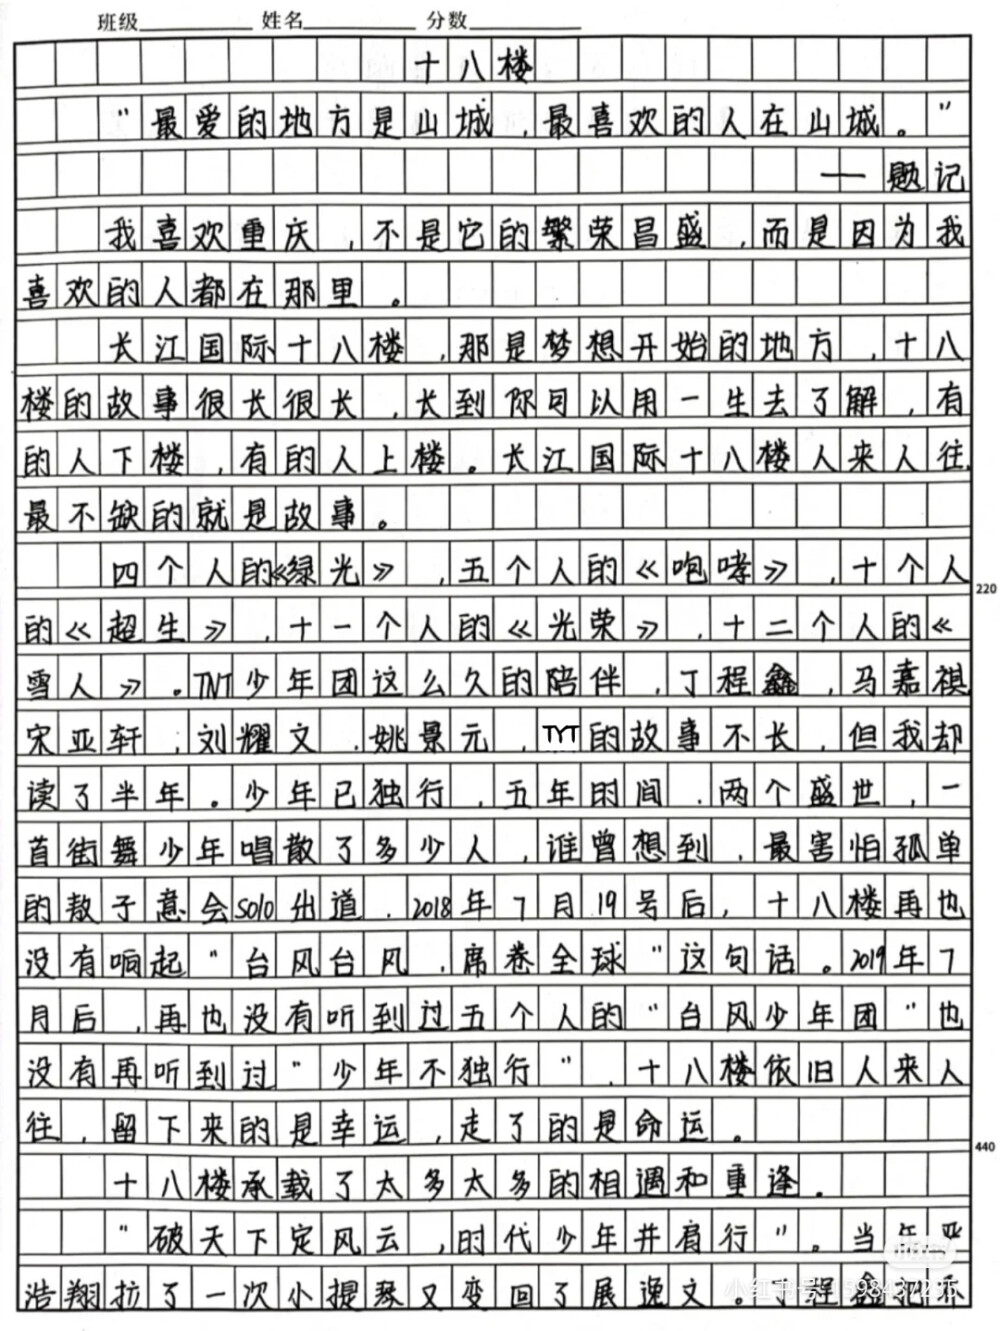 班级 姓名 分数
十八楼
“最爱的地方是山城，最喜欢的人在山城。”
——题记
我喜欢重庆，不是它的繁荣昌盛，而是因为我
喜欢的人都在那里。
长江国际十八楼，那是梦想开始的地方，十八
楼的故事很长很长，长到你可以用一生去了解，有
的人下楼，有的人上楼。长江国际十八楼人来人往
最不缺的就是故事。
四个人的《绿光》，五个人的《咆哮》，十个人
的《超生》，十一个人的《光荣》，十二个人的《
220
雪人》。TNT少年团这么久的陪伴，丁程鑫，马嘉祺
宋亚轩，刘耀文，姚景元，TYT的故事不长，但我却
读了半年。少年已独行，五年时间，两个盛世，一
首街舞少年唱散了多少人，谁曾想到，最害怕孤单
的敖子意会solo出道，2018年7月19号后，十八楼再也
没有响起“台风台风，席卷全球”这句话。2019年7
月后，再也没有听到过五个人的“台风少年团”也
没有再听到过“少年不独行”，十八楼依旧人来人
往，留下来的是幸运，走了的是命运。
440
十八楼承载了太多太多的相遇和重逢。
“破天下定风云，时代少年并肩行”。当年严
浩翔拉了一次小提琴又变回了展逸文。丁程鑫把
小红书
小红书号